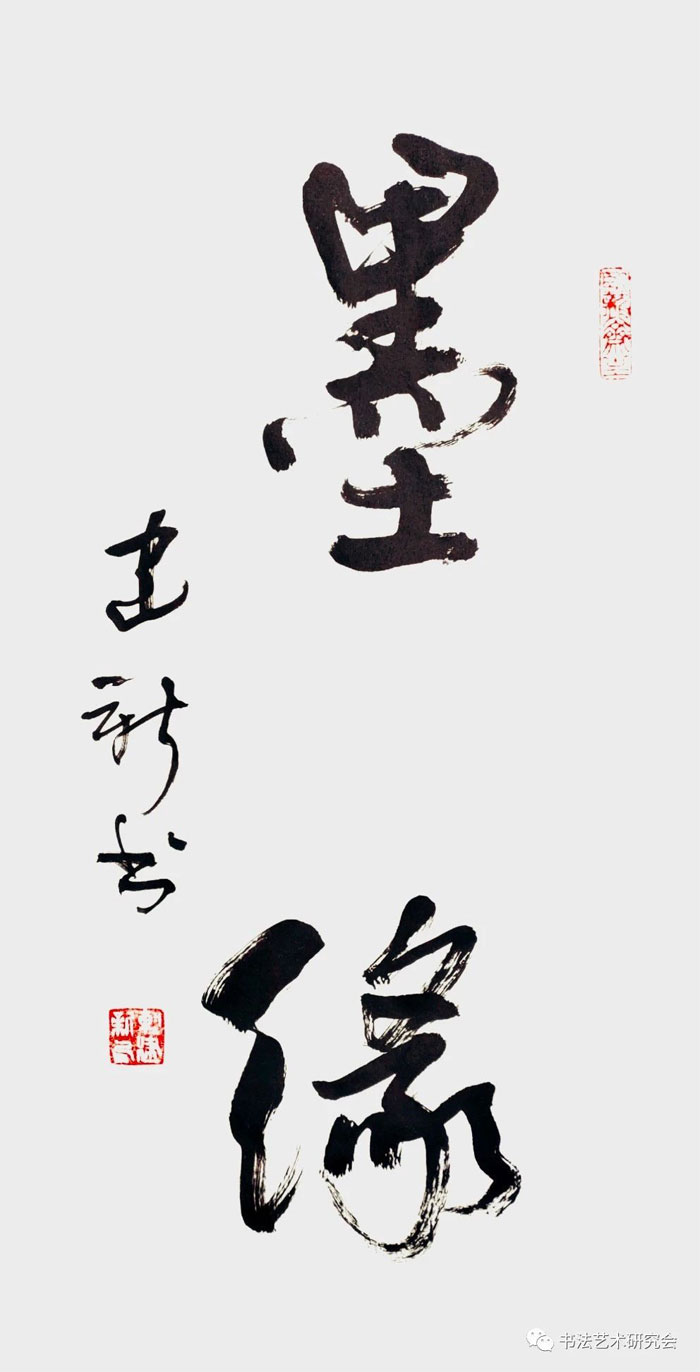 墨缘
建新书
书法艺术研究会